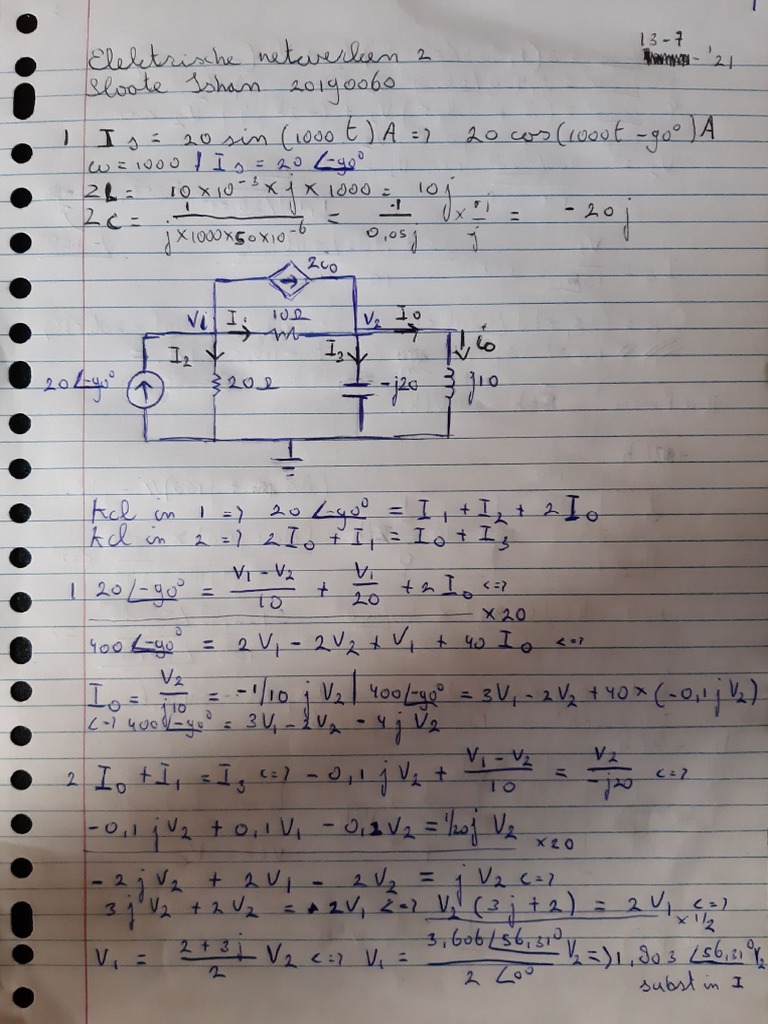 1
13-7
-'21
Elektrische netwerken 2
Sloote Ishan 20190060
1 Is = 20 sin(1000t)A => 20 cos(1000t -90°)A
ω = 1000 | Is = 20 ∠-90°
ZL = 10 × 10^-3 × j × 1000 = 10j
ZC = 1/(j×1000×50×10^-6) = 1/(0,05j) × j/j = -20j
2io
Vi I1 10Ω V2 Io
I2 I3 io
20∠-90° 20Ω -j20 j10
Kcl in 1 => 20∠-90° = I1 + I2 + 2Io
Kcl in 2 => 2Io + I1 = Io + I3
1 20∠-90° = (V1 - V2)/10 + V1/20 + 2Io <=>
×20
400∠-90° = 2V1 - 2V2 + V1 + 40 Io <=>
Io = V2/j10 = -1/10 j V2 | 400∠-90° = 3V1 - 2V2 + 40×(-0,1j V2)
<=> 400∠-90° = 3V1 - 2V2 - 4j V2
2 Io + I1 = I3 <=> -0,1j V2 + (V1 - V2)/10 = V2/-j20 <=>
-0,1j V2 + 0,1V1 - 0,1V2 = 1/20j V2
×20
-2j V2 + 2V1 - 2V2 = j V2 <=>
3j V2 + 2V2 = 2V1 <=> V2 (3j + 2) = 2V1 <=>
×1/2
V1 = (2+3j)/2 V2 <=> V1 = (3,606∠56,31°)/(2∠0°) V2 => 1,803∠56,31° V2
subst in I